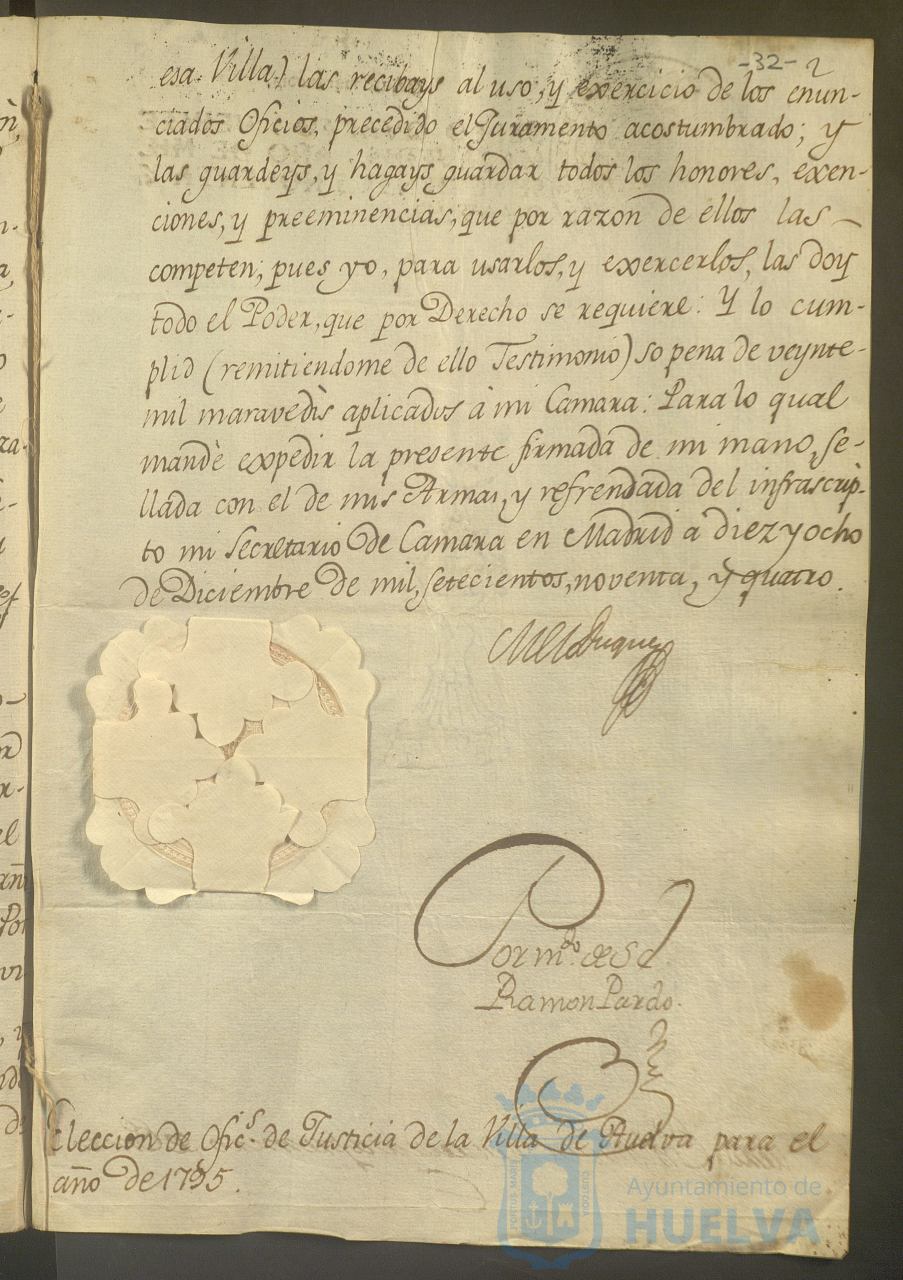 -32- 2
esa Villa) las recibays al uso, y exercicio de los enun-
ciados Oficios, precedido el Juramento acostumbrado; y
las guardeys, y hagays guardar todos los honores, exen-
ciones, y preeminencias, que por razon de ellos las
competen; pues yo, para usarlos, y exercerlos, las doy
todo el Poder, que por Derecho se requiere: Y lo cum-
plid (remitiendome de ello Testimonio) so pena de veynte
mil maravedis aplicados à mi Camara: Para lo qual
mandè expedir la presente firmada de mi mano, se-
llada con el de mis Armas, y refrendada del infrascrip-
to mi Secretario de Camara en Madrid a diez y ocho
de Diciembre de mil, setecientos, noventa, y quatro.
Duque
Por m.do de S E
Ramon Pardo.
Eleccion de Ofic.s de Justicia de la Villa de Huelva para el
año de 1795.
PORTUS MARIS CUSTODIA
Ayuntamiento de
HUELVA